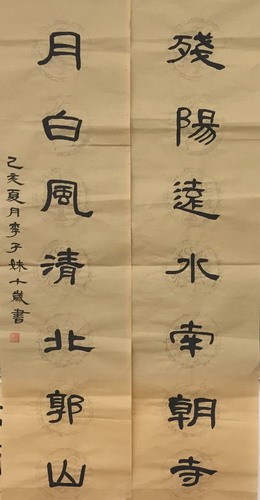 殘陽遠水南朝寺
月白風清北郭山
己亥夏月李子姝十歲書